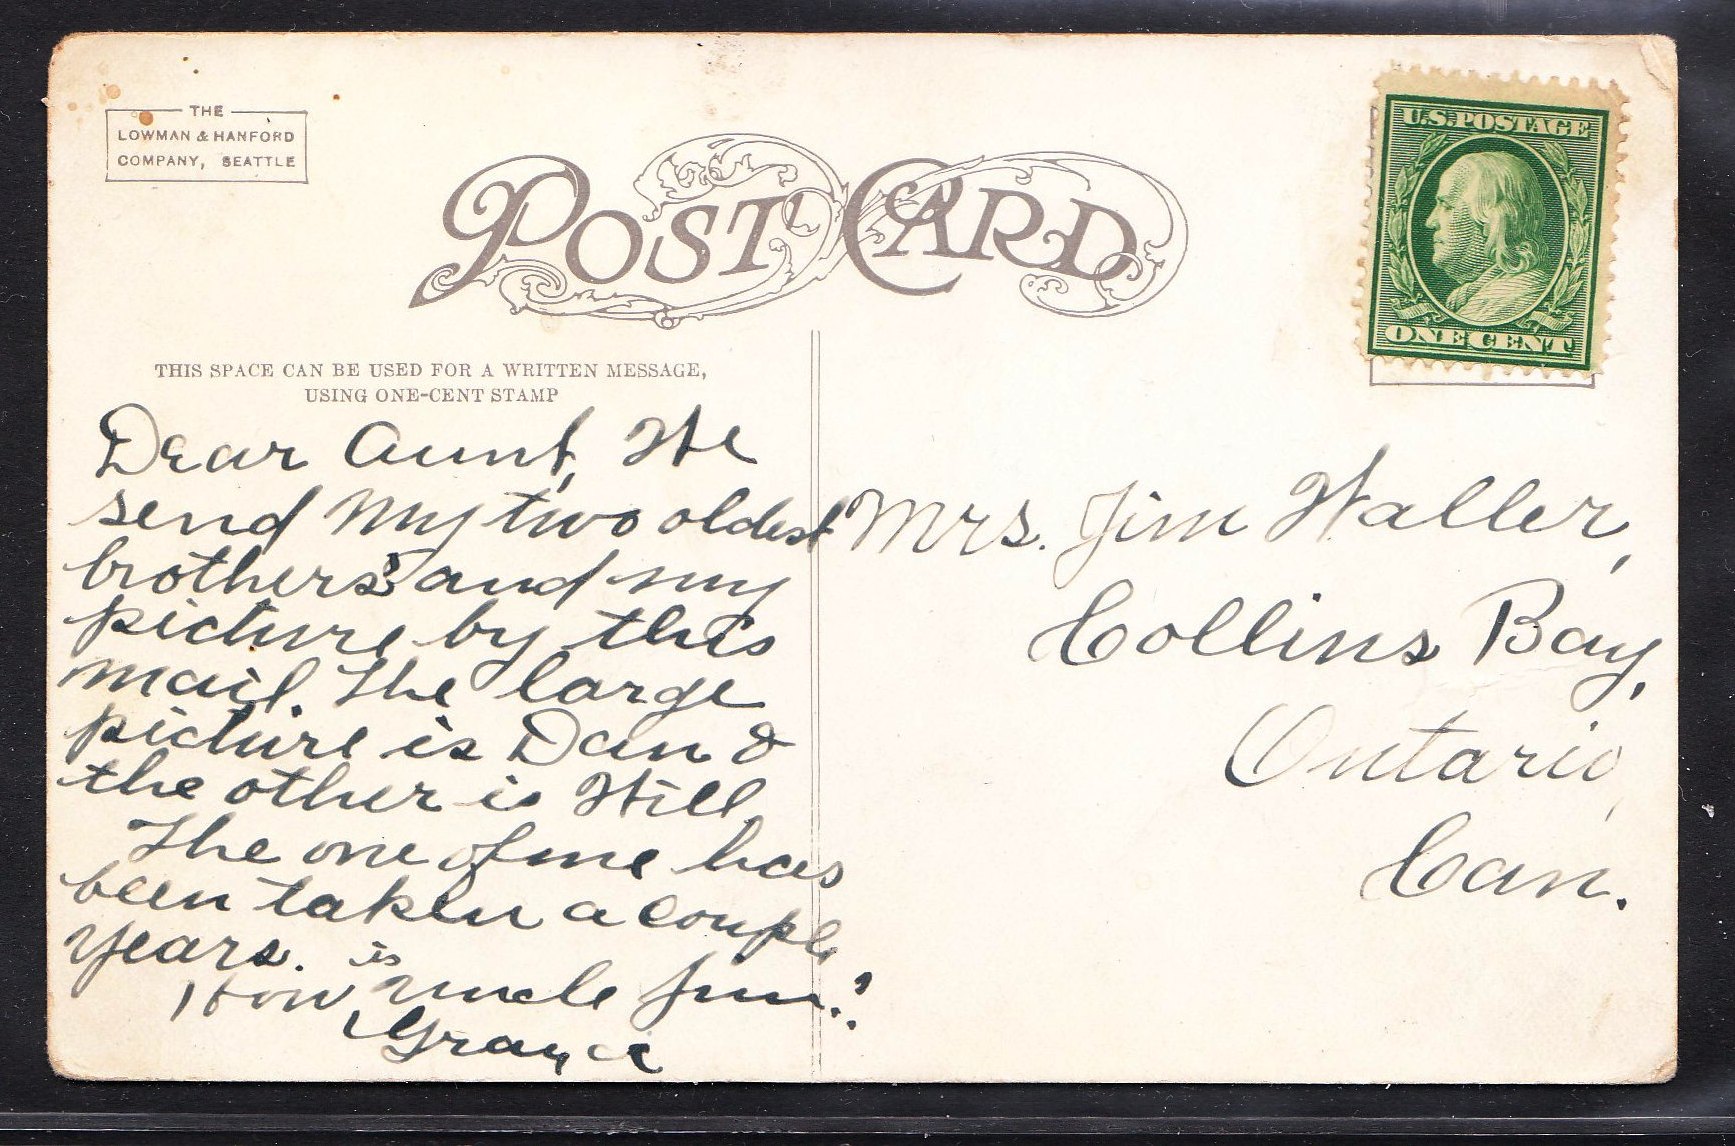 THE
LOWMAN & HANFORD
COMPANY, SEATTLE
POST CARD
U.S. POSTAGE
ONE CENT
THIS SPACE CAN BE USED FOR A WRITTEN MESSAGE,
USING ONE-CENT STAMP
Dear Aunt, We
send my two oldest
brothers and my
picture by this
mail. The large
picture is Dan &
the other is Will.
The one of me has
been taken a couple
years.
How is uncle Jim?
Mrs. Jim Waller,
Collins Bay,
Ontario,
Can.